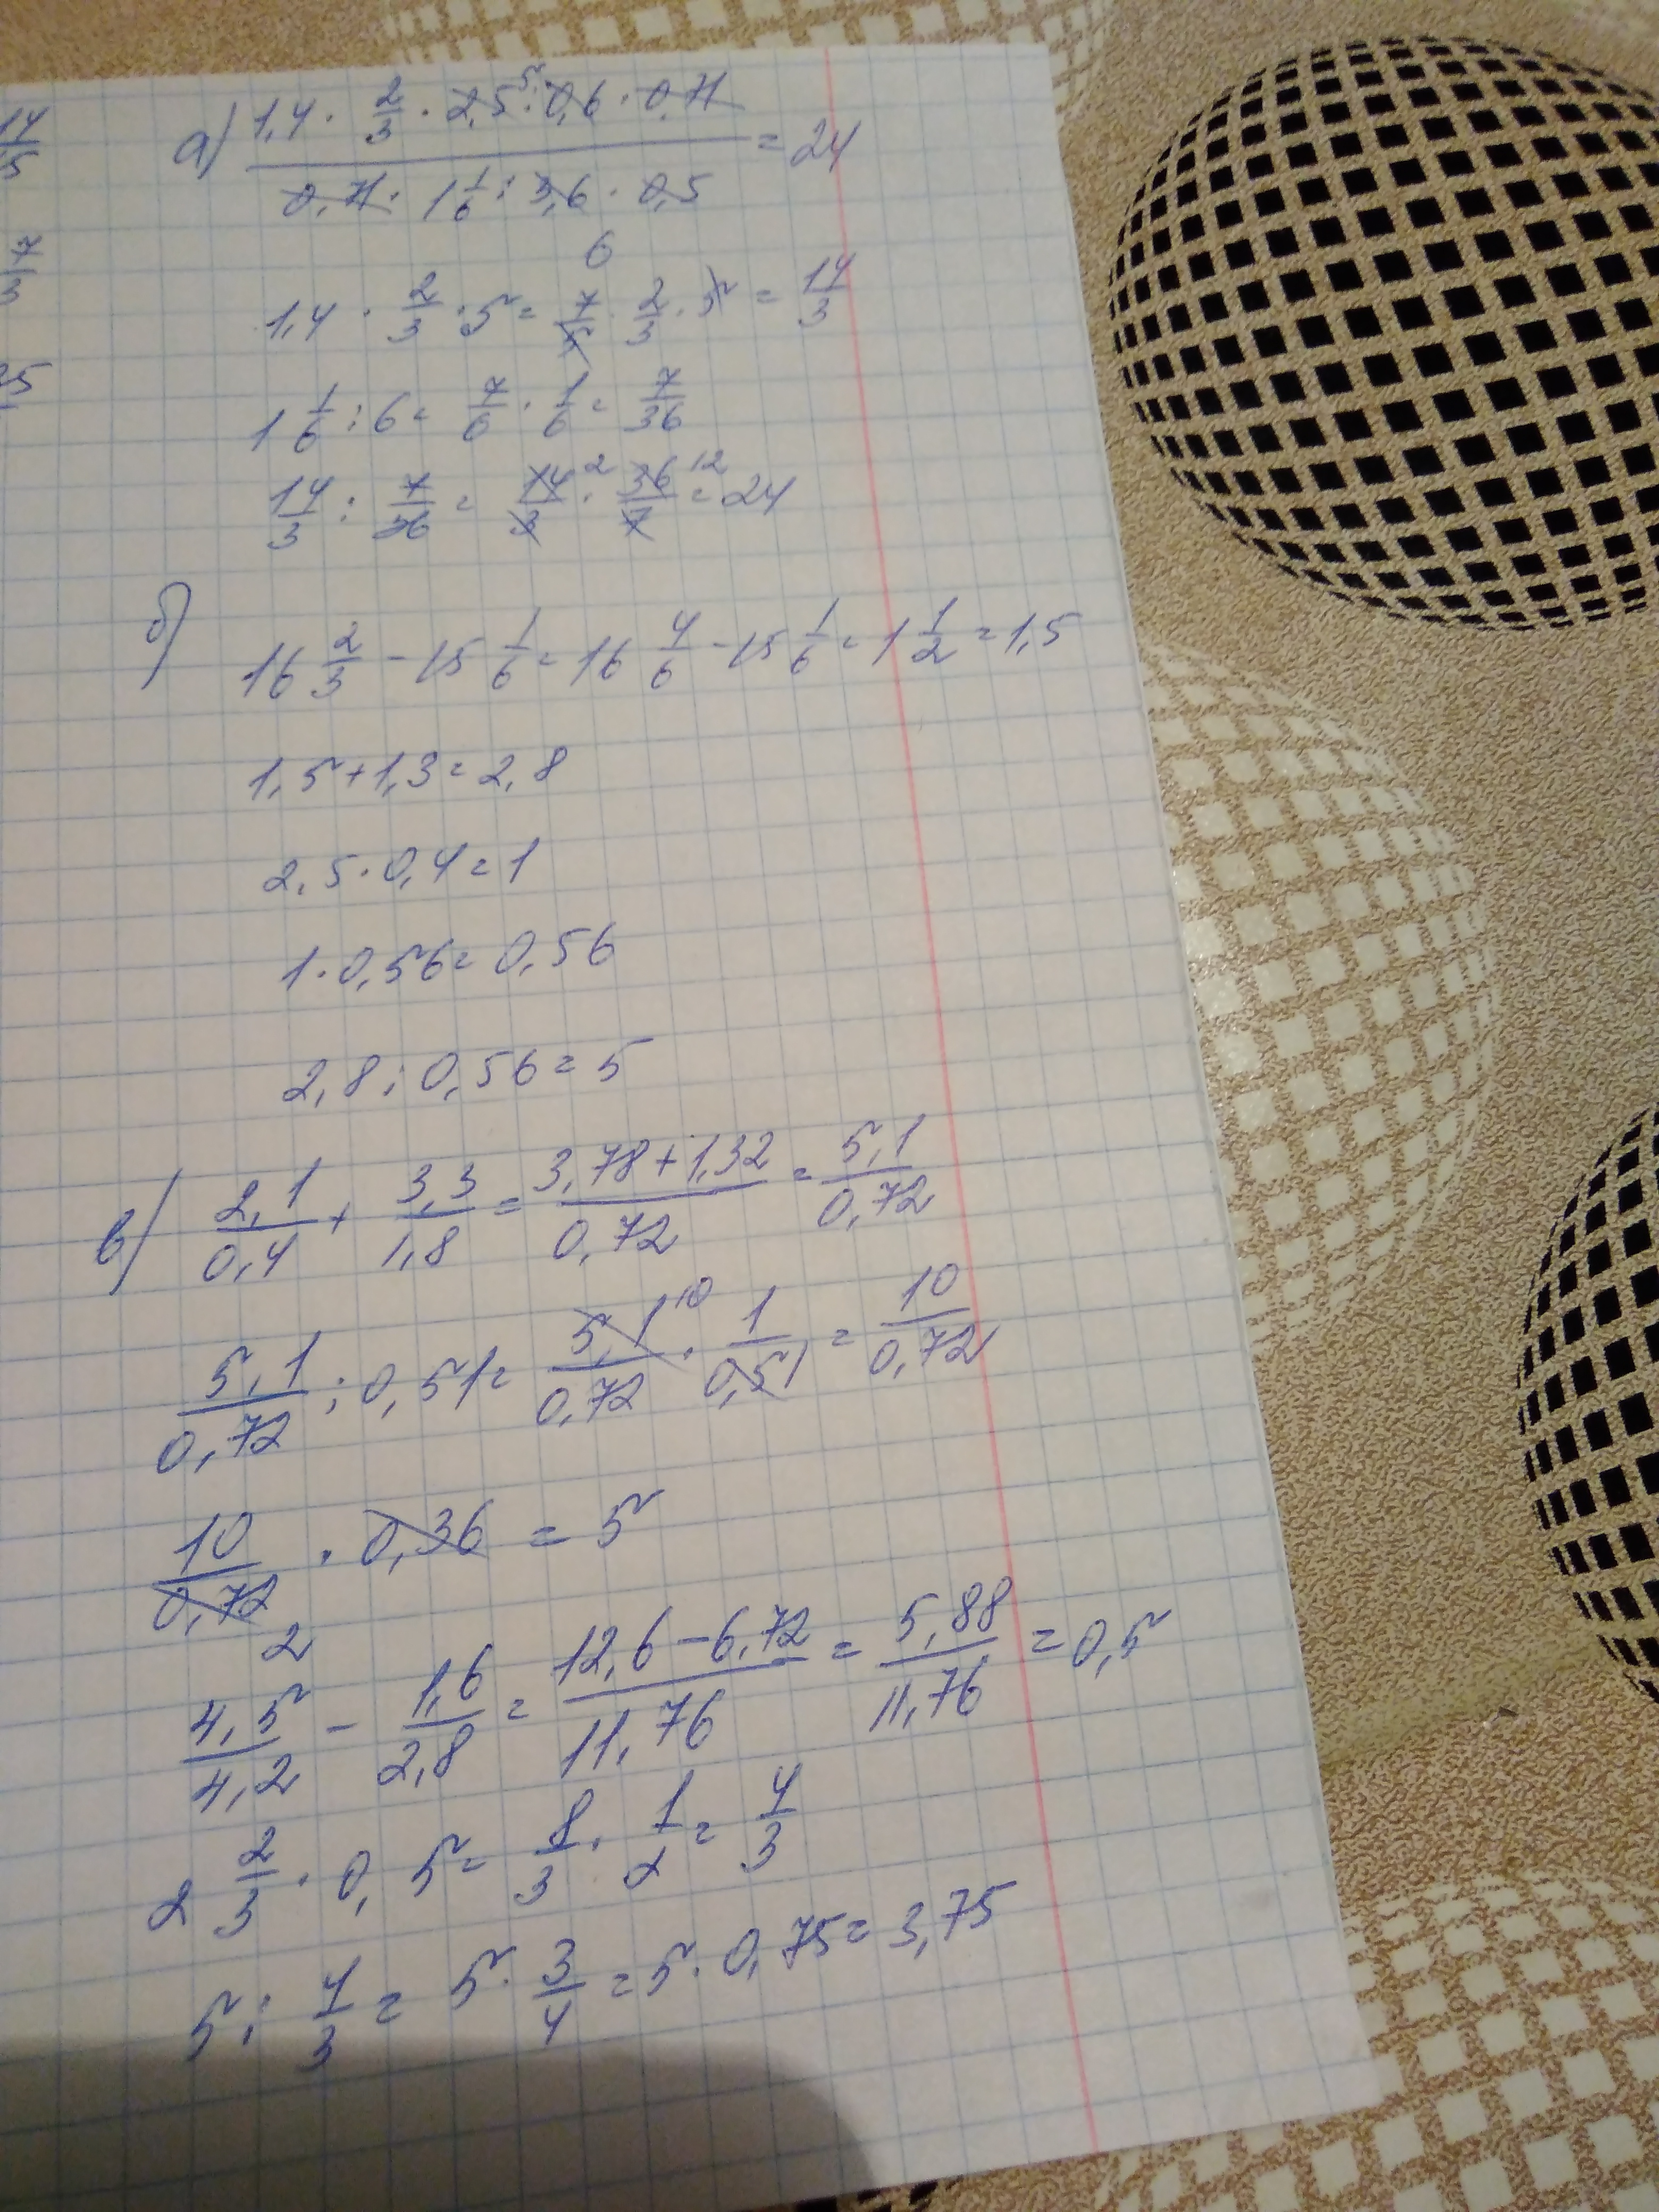 14/5
7/3
25
а) (1,4 · 2/3 · 2,5 5 : 0,6 · 0,71) / (0,71 · 1 1/6 : 3,6 · 0,5) = 24
6
1,4 · 2/3 · 5 = 7/5 · 2/3 · 5 = 14/3
1 1/6 : 6 = 7/6 · 1/6 = 7/36
14/3 : 7/36 = 14/3 2 · 36/7 12 = 24
б)
16 2/3 - 15 1/6 = 16 4/6 - 15 1/6 = 1 1/2 = 1,5
1,5 + 1,3 = 2,8
2,5 · 0,4 = 1
1 · 0,56 = 0,56
2,8 : 0,56 = 5
в) 2,1/0,4 + 3,3/1,8 = (3,78 + 1,32)/0,72 = 5,1/0,72
5,1/0,72 : 0,51 = 5,1/0,72 10 · 1/0,51 = 10/0,72
10/0,72 · 0,36 = 5
2
4,5/4,2 - 1,6/2,8 = (12,6 - 6,72)/11,76 = 5,88/11,76 = 0,5
2 2/3 · 0,5 = 8/3 · 1/2 = 4/3
5 : 4/3 = 5 · 3/4 = 5 · 0,75 = 3,75